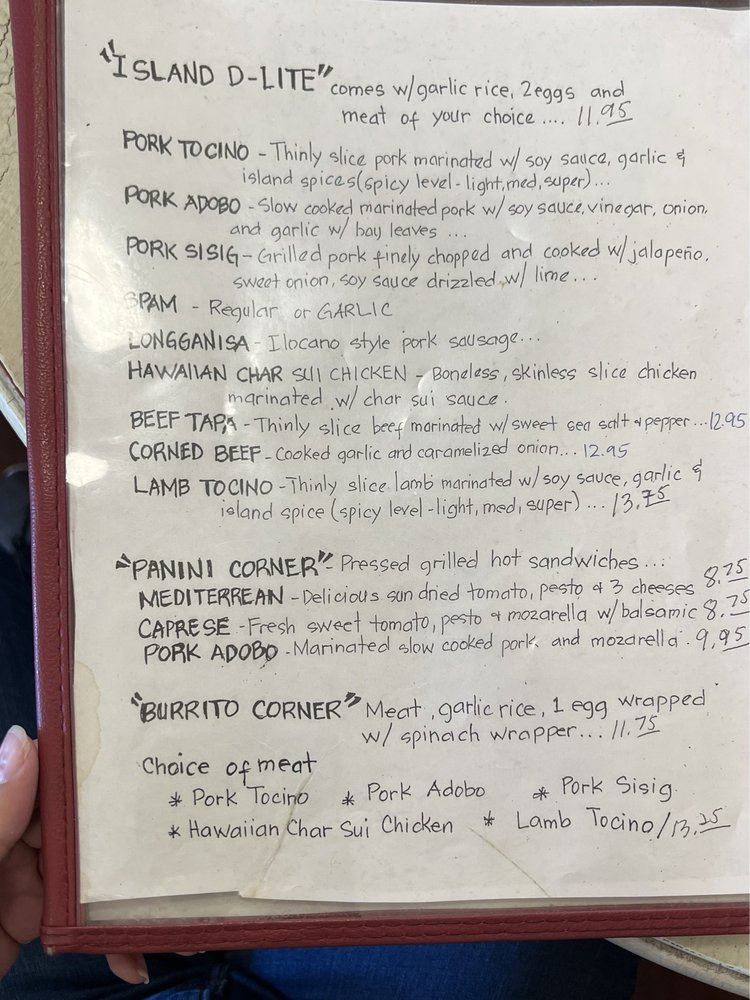 "ISLAND D-LITE" comes w/garlic rice, 2eggs and
meat of your choice .... 11.95
PORK TOCINO - Thinly slice pork marinated w/ soy sauce, garlic &
island spices(spicy level-light,med,super)...
PORK ADOBO - Slow cooked marinated pork w/ soy sauce, vinegar, onion,
and garlic w/ bay leaves ...
PORK SISIG - Grilled pork finely chopped and cooked w/jalapeño,
sweet onion, soy sauce drizzled w/ lime...
SPAM - Regular or GARLIC
LONGGANISA - Ilocano style pork sausage...
HAWAIIAN CHAR SUI CHICKEN - Boneless, skinless slice chicken
marinated w/ char sui sauce.
BEEF TAPA - Thinly slice beef marinated w/sweet sea salt & pepper...12.95
CORNED BEEF - Cooked garlic and caramelized onion... 12.95
LAMB TOCINO - Thinly slice lamb marinated w/ soy sauce, garlic &
island spice (spicy level-light, med, super) ... 13.75
"PANINI CORNER" - Pressed grilled hot sandwiches...
MEDITERREAN - Delicious sun dried tomato, pesto & 3 cheeses 8.75
CAPRESE - Fresh sweet tomato, pesto & mozarella w/balsamic 8.75
PORK ADOBO - Marinated slow cooked pork and mozarella. 9.95
"BURRITO CORNER" Meat, garlic rice, 1 egg wrapped
w/ spinach wrapper... 11.75
Choice of meat
* Pork Tocino * Pork Adobo * Pork Sisig
* Hawaiian Char Sui Chicken * Lamb Tocino/13.25